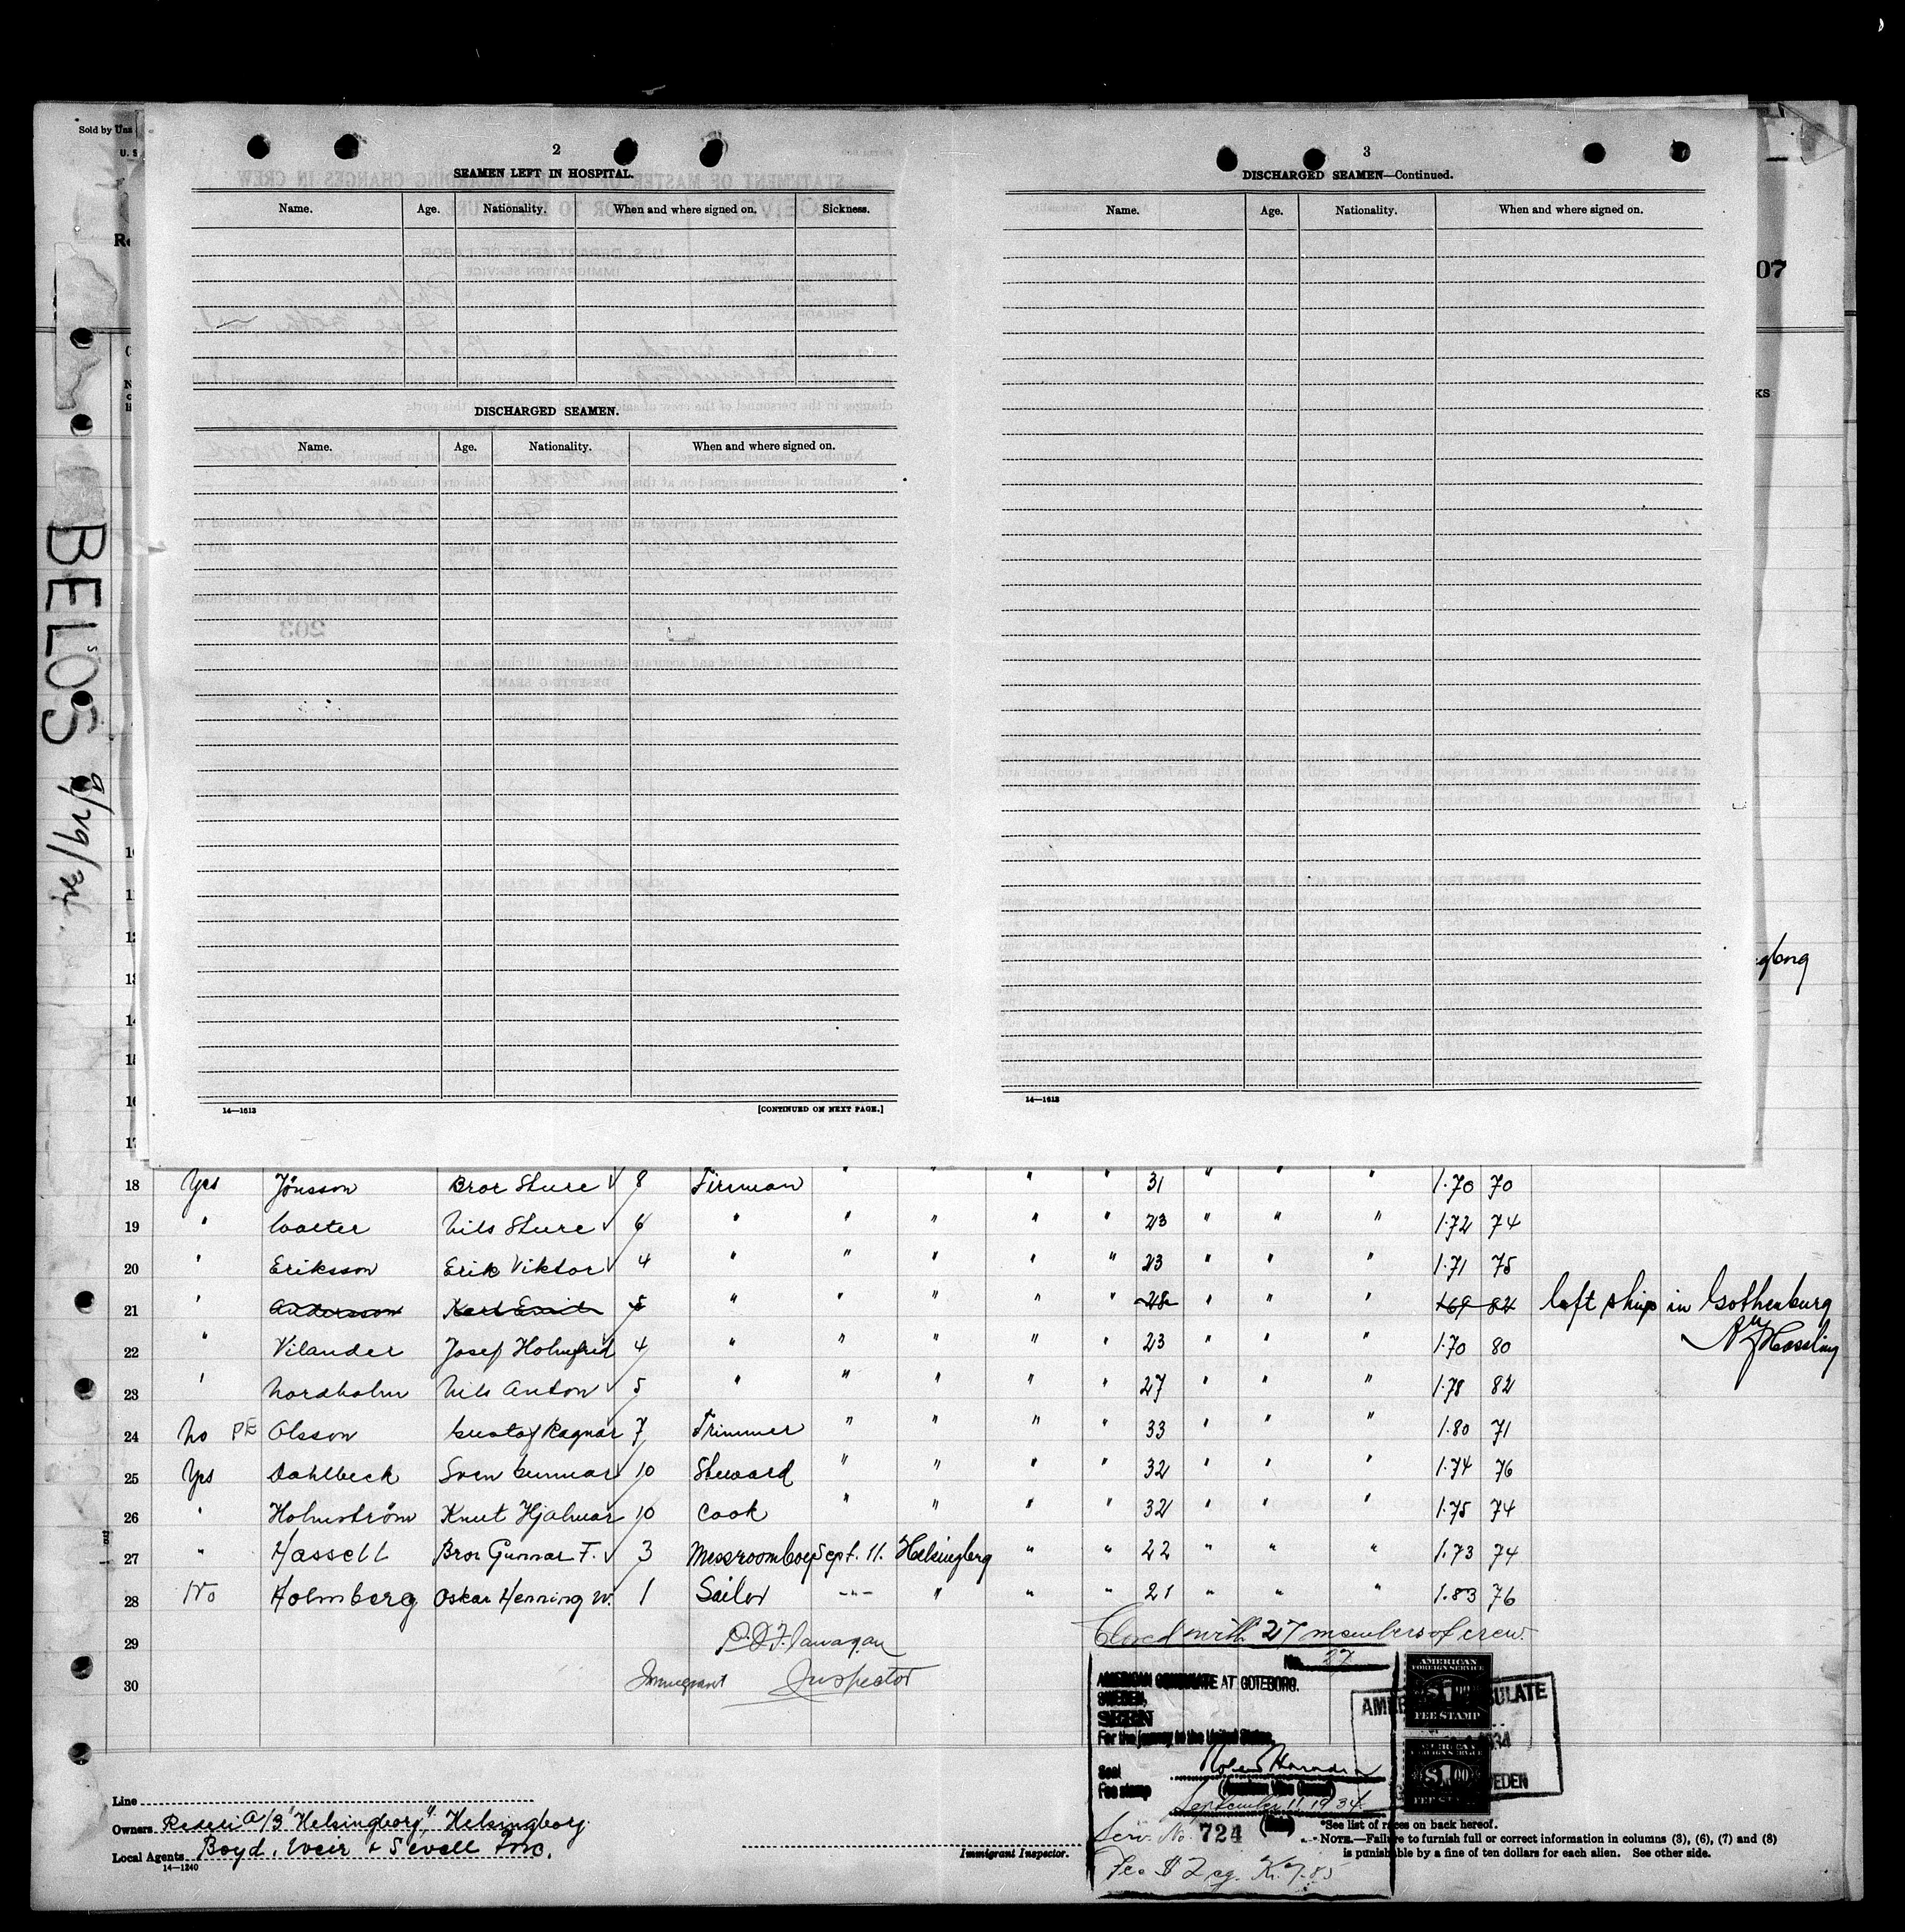 Sold by
U. S
2
SEAMEN LEFT IN HOSPITAL.
Name. Age. Nationality. When and where signed on. Sickness.
DISCHARGED SEAMEN.
Name. Age. Nationality. When and where signed on.
14—1613
[CONTINUED ON NEXT PAGE.]
3
DISCHARGED SEAMEN—Continued.
Name. Age. Nationality. When and where signed on.
14—1613
07
BELOS 9/29/34.
18 Yes Jönsson Bror Sture √ 8 Firman " " " " 31 " " " 1.70 70
19 " Walter Nils Sture √ 6 " " " " " 23 " " " 1.72 74
20 " Eriksson Erik Viktor √ 4 " " " " " 23 " " " 1.71 75
21 " Andersson Karl Emil 5 " " " " " 28 " " " 1.69 84 left ship in Gothenburg
22 " Vilander Josef Holmfrid 4 " " " " " 23 " " " 1.70 80
23 " Nordholm Nils Anton √ 5 " " " " " 27 " " " 1.78 82
24 No PE Olsson Gustaf Ragnar 7 Trimmer " " " " 33 " " " 1.80 71
25 Yes Dahlbeck Sven Gunnar √ 10 Steward " " " " 32 " " " 1.74 76
26 " Holmström Knut Hjalmar 10 Cook " " " " 32 " " " 1.75 74
27 " Hassell Bror Gunnar F. √ 3 Messroomboy Sept. 11. Helsingborg " " 22 " " " 1.73 74
28 No Holmberg Oskar Henning W. 1 Sailor -"- " " " 21 " " " 1.83 76
29
30
Immigrant Inspector
Closed with 27 members of crew.
No. 27
AMERICAN CONSULATE AT GOTEBORG,
SWEDEN,
SEEN
For the journey to the United States.
Seal
Fee stamp
(American Vice Consul)
September 11 1934
(Date)
Serv. No. 724
Fee $ 2 eq. Kr. 7.85
AMERICAN
FOREIGN SERVICE
$1.00
FEE STAMP
AMERICAN
FOREIGN SERVICE
$1.00
FEE STAMP
Line
Owners Rederi A/B "Helsingborg", Helsingborg.
Local Agents Boyd, Weir & Sewell Inc.
14—1240
Immigrant Inspector.
*See list of races on back hereof.
NOTE.—Failure to furnish full or correct information in columns (3), (6), (7) and (8)
is punishable by a fine of ten dollars for each alien. See other side.